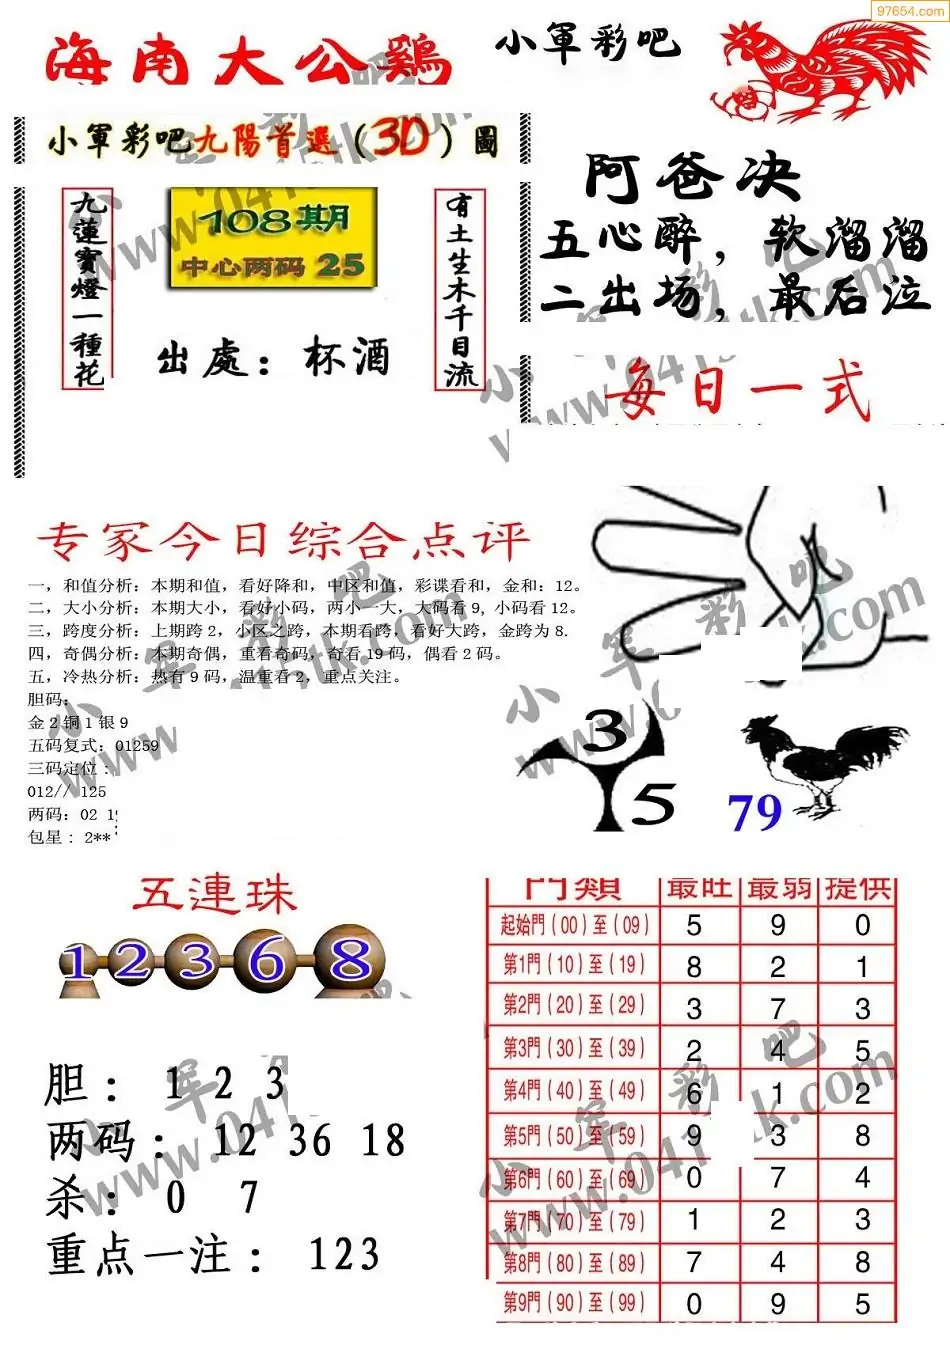 97654.com
海南大公鷄
小軍彩吧
小軍彩吧九陽首選(3D)圖
九蓮寶燈一種花
108期
中心两码 25
出處：杯酒
有土生木千目流
阿爸决
五心醉，软溜溜
二出场，最后泣
每日一式
专家今日综合点评
一，和值分析：本期和值，看好降和，中区和值，彩谍看和，金和：12。
二，大小分析：本期大小，看好小码，两小一大，大码看9，小码看12。
三，跨度分析：上期跨2，小区之跨，本期看跨，看好大跨，金跨为8.
四，奇偶分析：本期奇偶，重看奇码，奇看19码，偶看2码。
五，冷热分析：热有9码，温重看2，重点关注。
胆码：
金2铜1银9
五码复式：01259
三码定位：
012// 125
两码：02 19
包星：2**
3
5
79
五連珠
1 2 3 6 8
胆： 1 2 3
两码： 12 36 18
杀： 0 7
重点一注： 123
門類 最旺 最弱 提供
起始門(00)至(09) 5 9 0
第1門(10)至(19) 8 2 1
第2門(20)至(29) 3 7 3
第3門(30)至(39) 2 4 5
第4門(40)至(49) 6 1 2
第5門(50)至(59) 9 3 8
第6門(60)至(69) 0 7 4
第7門(70)至(79) 1 2 3
第8門(80)至(89) 7 4 8
第9門(90)至(99) 0 9 5